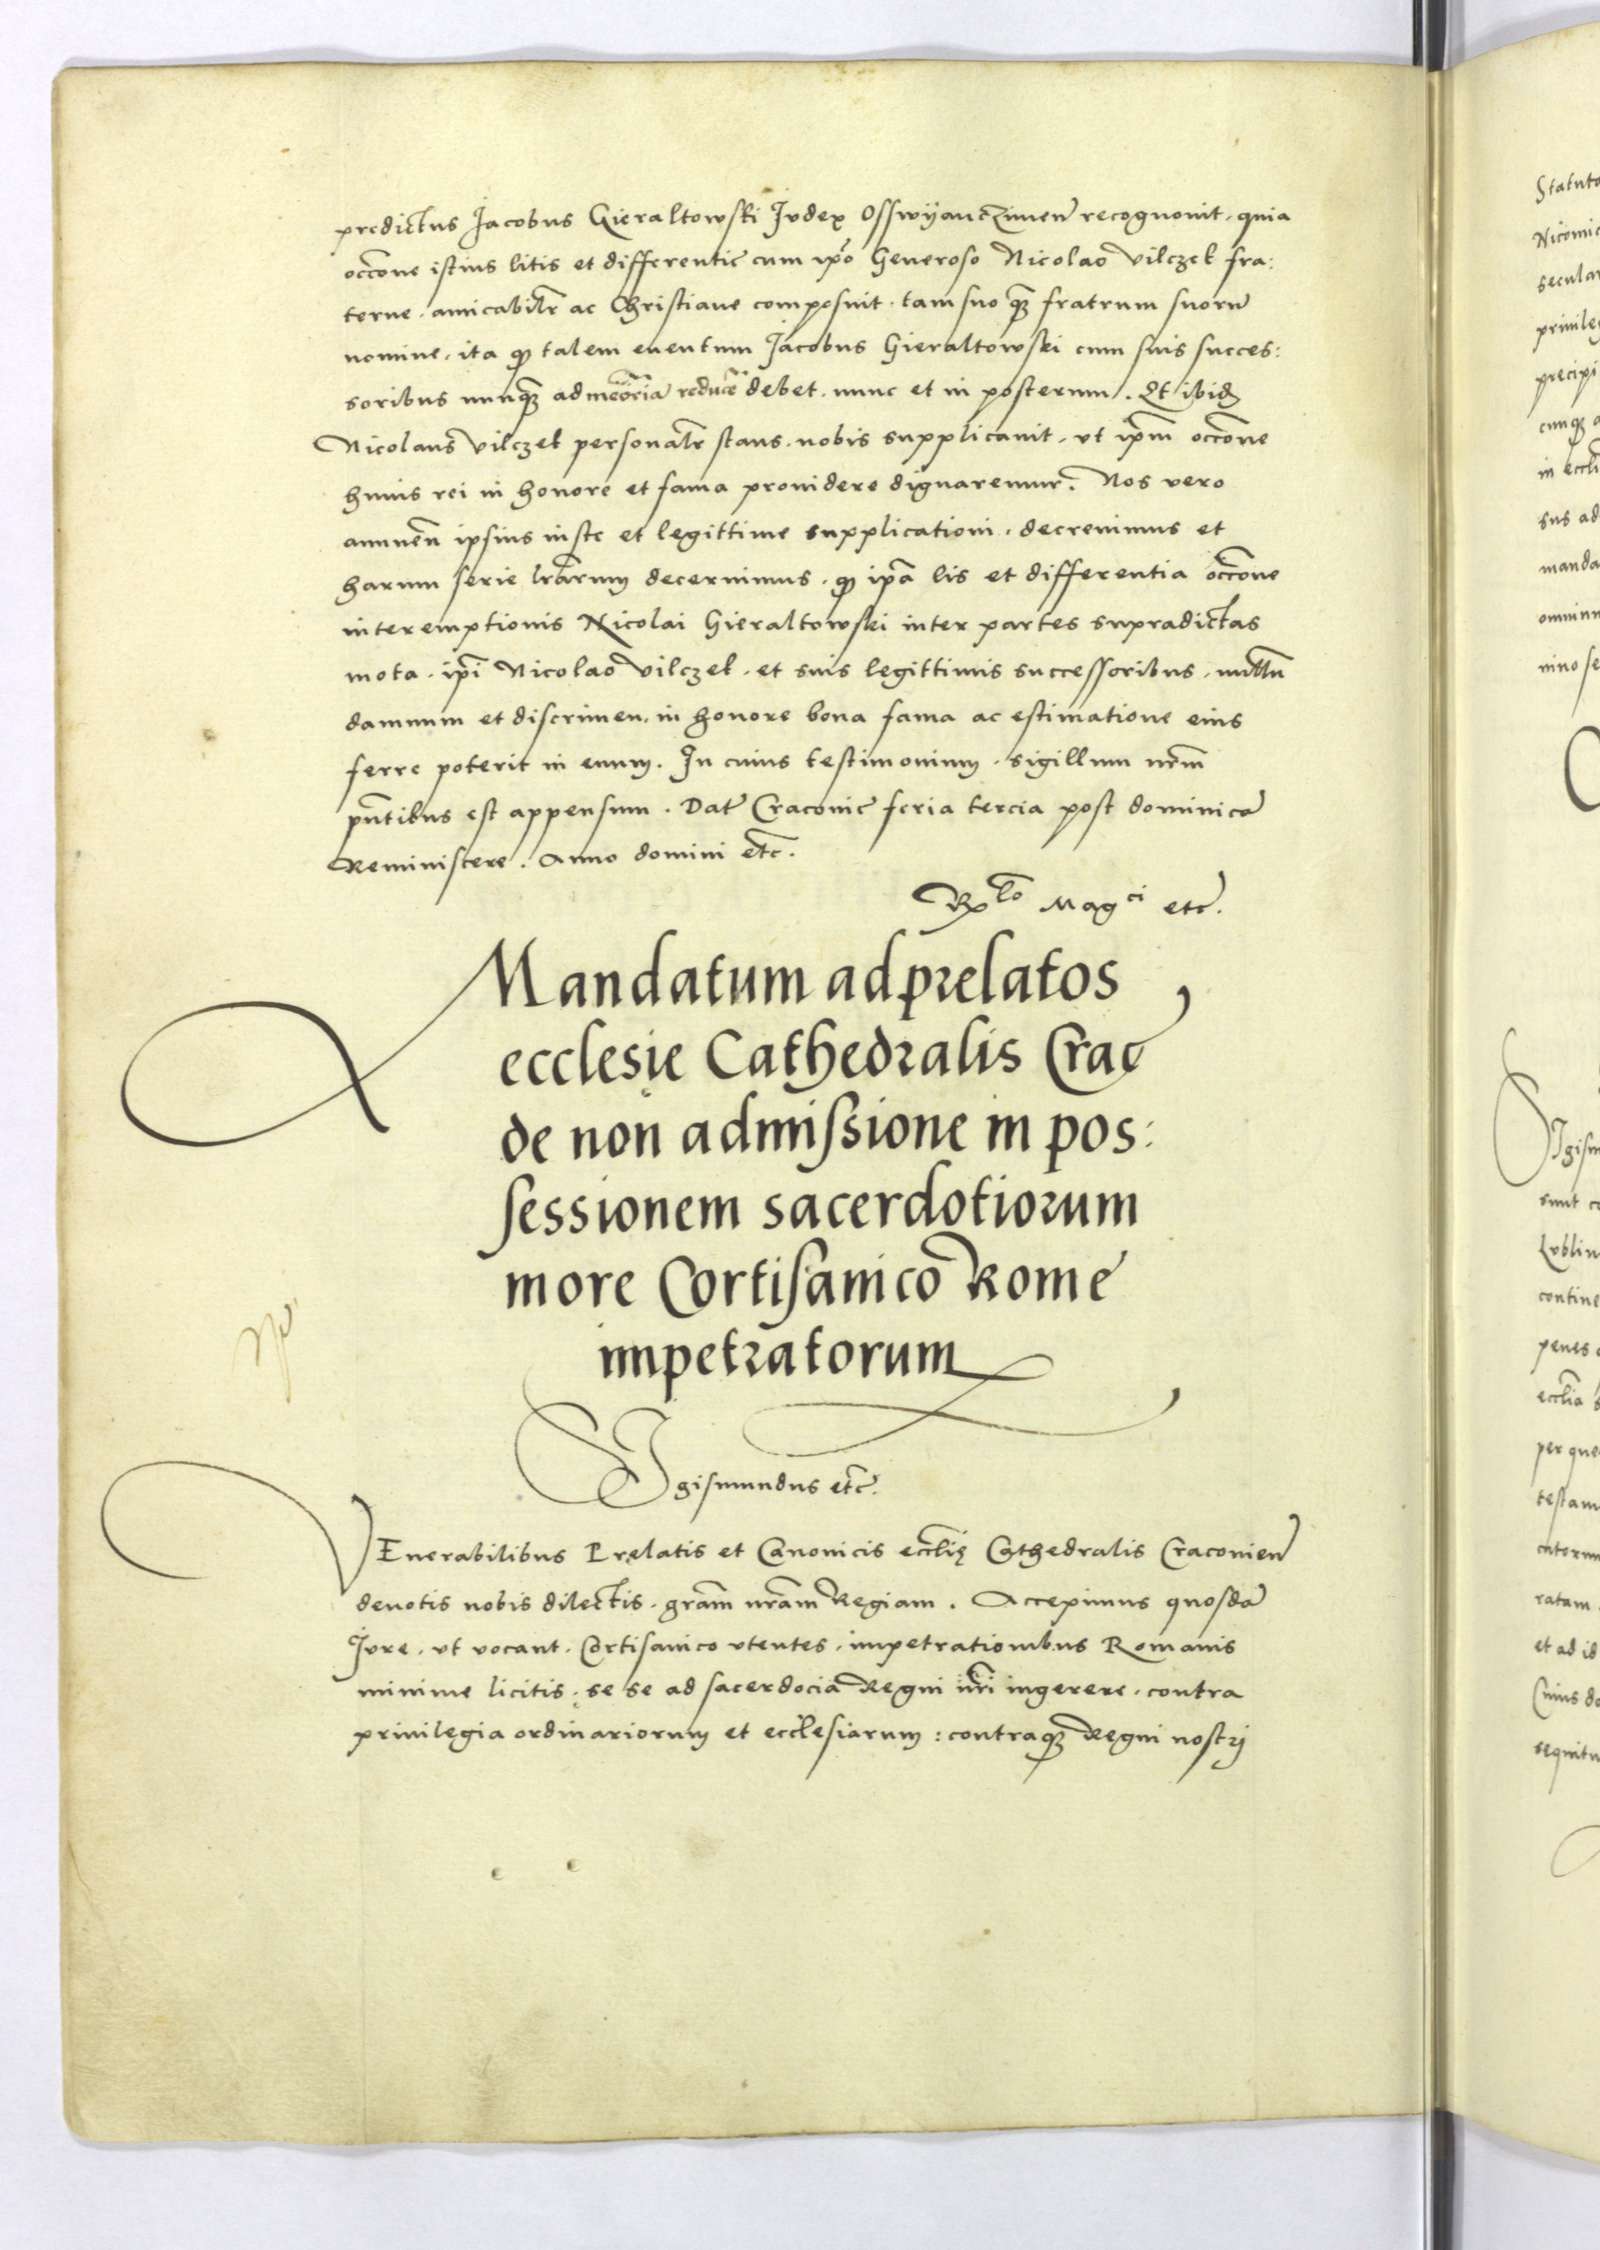 predictus Jacobus Gieraltowski Judex Osswÿanczimen̄ recognouit · quia
occōne istius litis et differentie cum ip̄o Generoso Nicolao Vilczek fra:
terne · amicabilr̄ ac Christiane composuit · tam suo q̄ꝫ fratrum suorū
nomine · ita ꝙ talem euentum Jacobus Gieraltowski cum suis succes:
soribus nunq̄ꝫ ad memoriā reducē debet · nunc et in posterum . Et ibid̄
Nicolaus Vilczek personalr̄ stans · nobis supplicauit · vt ip̄m occōne
huius rei in honore et fama prouidere dignaremur . Nos vero
annuen̄ ipsius iuste et legittime supplicationi · decreuimus et
harum serie lr̄arum decernimus · ꝙ ip̄a lis et differentia occōne
interemptionis Nicolai Gieraltowski inter partes supradictas
mota · ip̄i Nicolao Vilczek · et suis legittimis successoribus · nullū
damnum et discrimen · in honore bona fama ac estimatione eius
ferre poterit in euum . In cuius testimonium · sigillum nr̄m
pn̄tibus est appensum . Dat̄ Cracouie feria tercia post dominicā
Reminiscere . Anno domini etc̄ .
Mag ci etc .
Mandatum ad prelatos
ecclesie Cathedralis Crac̄
de non admissione in pos:
sessionem sacerdotiorum
more Cortisanico Rome
impetratorum
SIgismundus etc̄ .
VEnerabilibus Prelatis et Canonicis eccl̄ię Cathedralis Cracouien̄
deuotis nobis dilectis · gr̄am nr̄am Regiam . Accepimus quosdā
Jure · vt vocant · Cortisanico vtentes · impetrationibus Romanis
minime licitis · se se ad sacerdocia Regni nr̄i ingerere · contra
priuilegia ordinariorum et ecclesiarum : contraq̄ꝫ Regni nostri